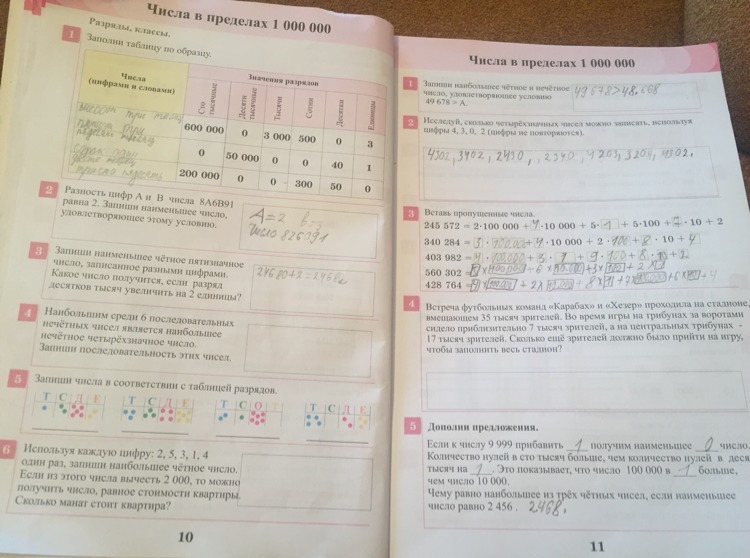 Числа в пределах 1 000 000
Разряды, классы.
1
Заполни таблицу по образцу.
Числа
(цифрами и словами)
Значения разрядов
Сто тысячные
Десяти тысячные
Тысячи
Сотни
Десятки
Единицы
600 000 0 3 000 500 0 3
0 50 000 0 0 40 1
200 000 0 0 300 50 0
2
Разность цифр А и В числа 8А6В91
равна 2. Запиши наименьшее число,
удовлетворяющее этому условию.
А=2
число 826091
3
Запиши наименьшее чётное пятизначное
число, записанное разными цифрами.
Какое число получится, если разряд
десятков тысяч увеличить на 2 единицы?
4
Наибольшим среди 6 последовательных
нечётных чисел является наибольшее
нечётное четырёхзначное число.
Запиши последовательность этих чисел.
5
Запиши числа в соответствии с таблицей разрядов.
Т С Д Е
Т С Д Е
Т С О Т
Т С Д Е
6
Используя каждую цифру: 2, 5, 3, 1, 4
один раз, запиши наибольшее чётное число.
Если из этого числа вычесть 2 000, то можно
получить число, равное стоимости квартиры.
Сколько манат стоит квартира?
10
Числа в пределах 1 000 000
1
Запиши наибольшее чётное и нечётное
число, удовлетворяющее условию
49 678 > А.
2
Исследуй, сколько четырёхзначных чисел можно записать, используя
цифры 4, 3, 0, 2 (цифры не повторяются).
4302, 3402, 2430, 2340, 4203, 3204, 4302.
3
Вставь пропущенные числа.
245 572 = 2·100 000 + 4·10 000 + 5·1 + 5·100 + 7·10 + 2
340 284 = 3·100.000 + 4·10 000 + 2·100 + 8·10 + 4
403 982 =
560 302 =
428 764 =
4
Встреча футбольных команд «Карабах» и «Хезер» проходила на стадионе,
вмещающем 35 тысяч зрителей. Во время игры на трибунах за воротами
сидело приблизительно 7 тысяч зрителей, а на центральных трибунах -
17 тысяч зрителей. Сколько ещё зрителей должно было прийти на игру,
чтобы заполнить весь стадион?
5
Дополни предложения.
Если к числу 9 999 прибавить 1 получим наименьшее 0 число.
Количество нулей в сто тысяч больше, чем количество нулей в деся
тысяч на 1. Это показывает, что число 100 000 в 1 больше,
чем число 10 000.
Чему равно наибольшее из трёх чётных чисел, если наименьшее
число равно 2 456. 2468.
11